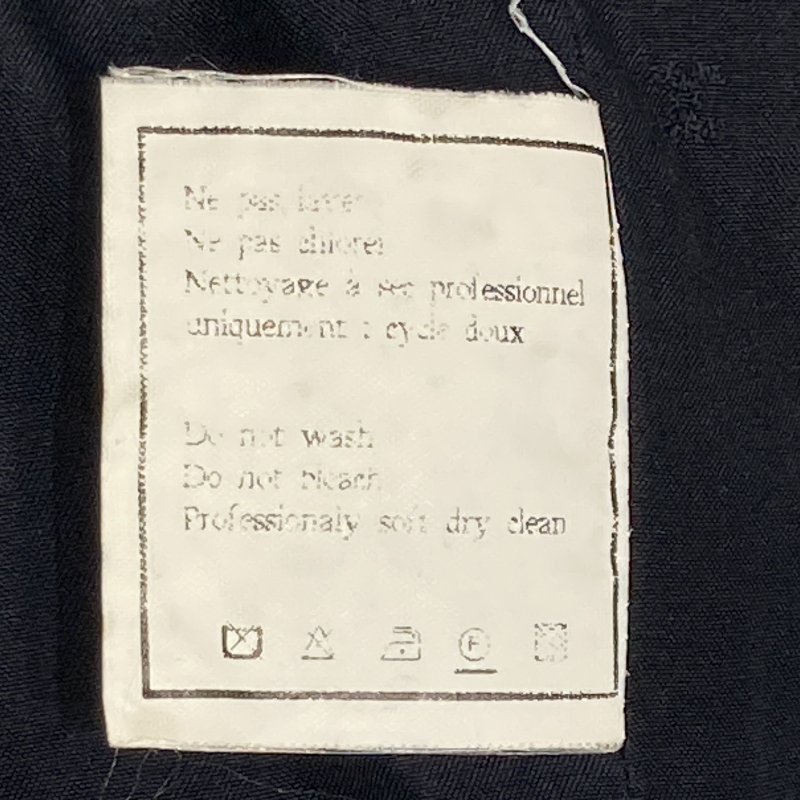 Ne pas laver
Ne pas chlorer
Nettoyage à sec professionnel
uniquement : cycle doux
Do not wash
Do not bleach
Professionaly soft dry clean
F